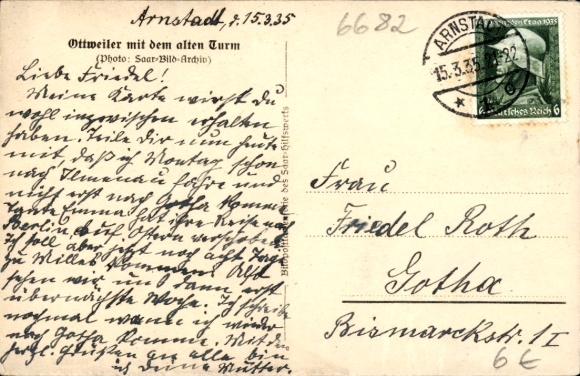 Arnstadt, d. 15.3.35
6682
ARNSTADT
15.3.35 21-22
Deutsches Reich 6
Ottweiler mit dem alten Turm
(Photo: Saar-Bild-Archiv)
Liebe Friedel!
Meine Karte wirst du
wohl inzwischen erhalten
haben. Teile Dir nun heute
mit, daß ich Montag schon
nach Ilmenau fahre und
nicht erst nach Gotha komme
Tante Emma hat ihre Reise nach
Berlin auf Ostern verschoben
ich soll aber jetzt noch acht Tage
zu Willes kommen. Also
sehen wir uns dann erst
übernächste Woche. Ich schreibe
nochmal wann ich wieder
nach Gotha komme. Mit den
herzl. Grüßen an alle bin
ich deine Mutter.
des Saar-Hilfswerks
Frau
Friedel Roth
Gotha
Bismarckstr. 1 I
6 €